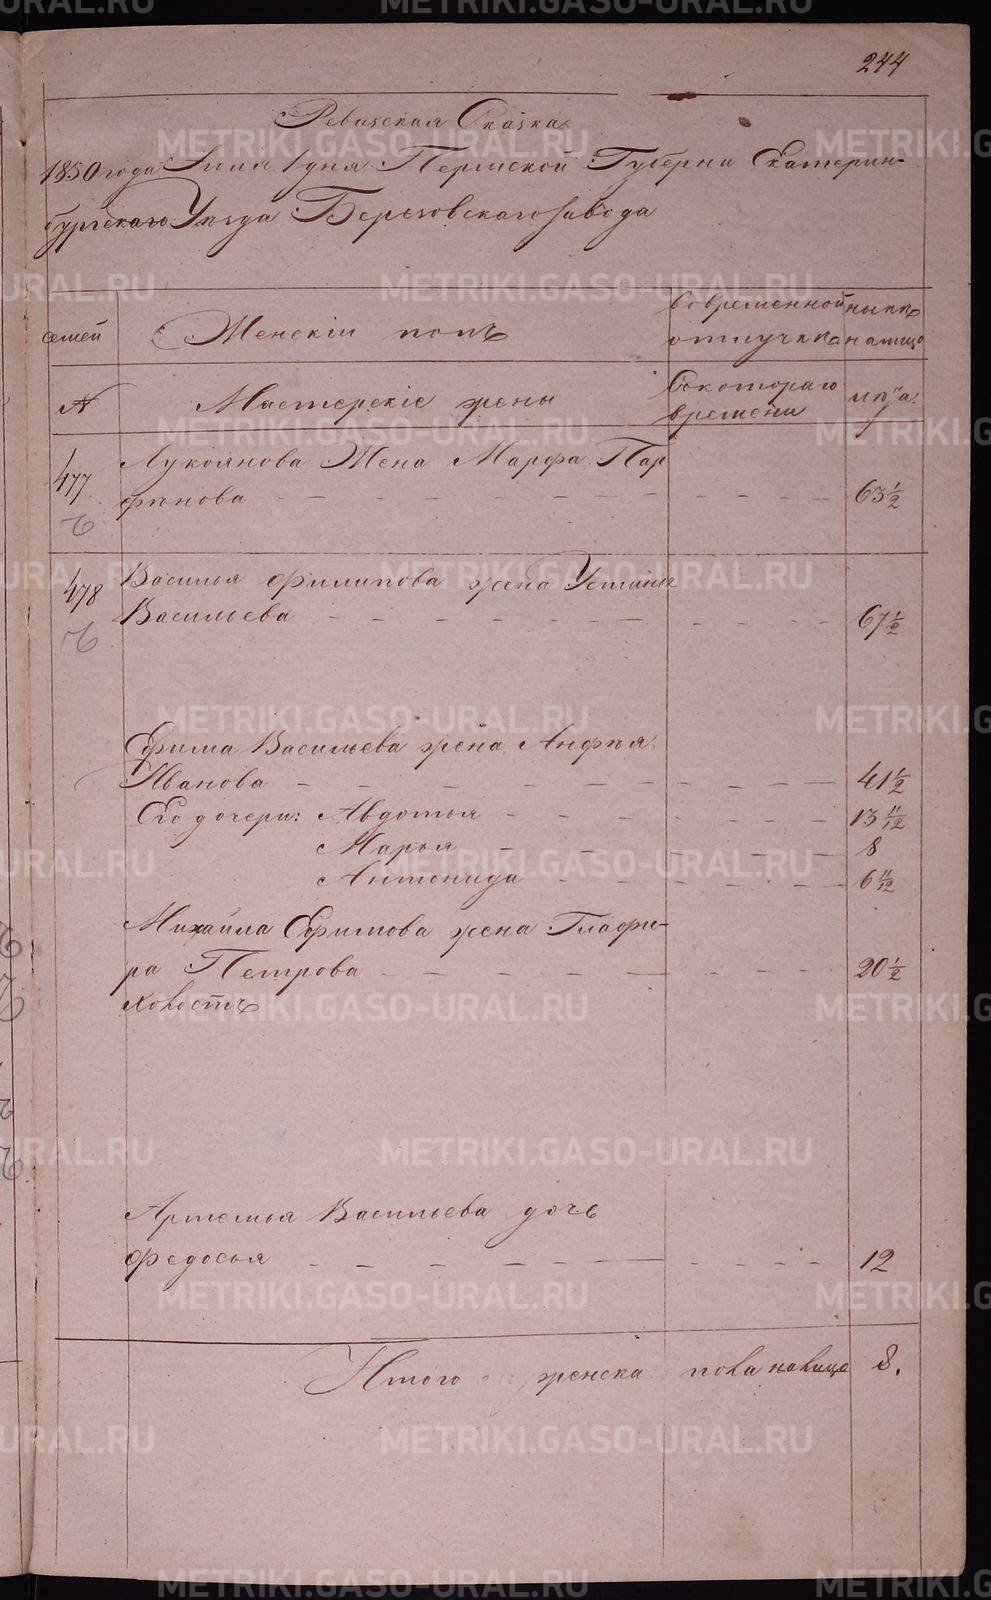 244
Ревизская Сказка
1850 года Июня 1 дня Пермской Губерни Екатерин-
бургскаго Уѣзда Березовскаго завода
семей
Женскій полъ
Во временной
отлучкѣ
нынѣ
на лицо
№
Мастерскіе жены
Съ котораго
времени
лѣта.
477
Лукоянова Жена Марфа Пар
фѣнова
63 1/2
478
Василья Филипова жена Устинья
Васильева
67 1/2
Ефима Васильева жена Анфѣя
Иванова
41 1/2
Его дочери: Авдотья
13 11/12
Марья
8
Антонида
6 11/12
Михайла Ефимова жена Глафи-
ра Петрова
20 1/2
холостъ
Артемья Васильева дочь
Федосья
12
Итого женска пола на лицо 8.
METRIKI.GASO-URAL.RU